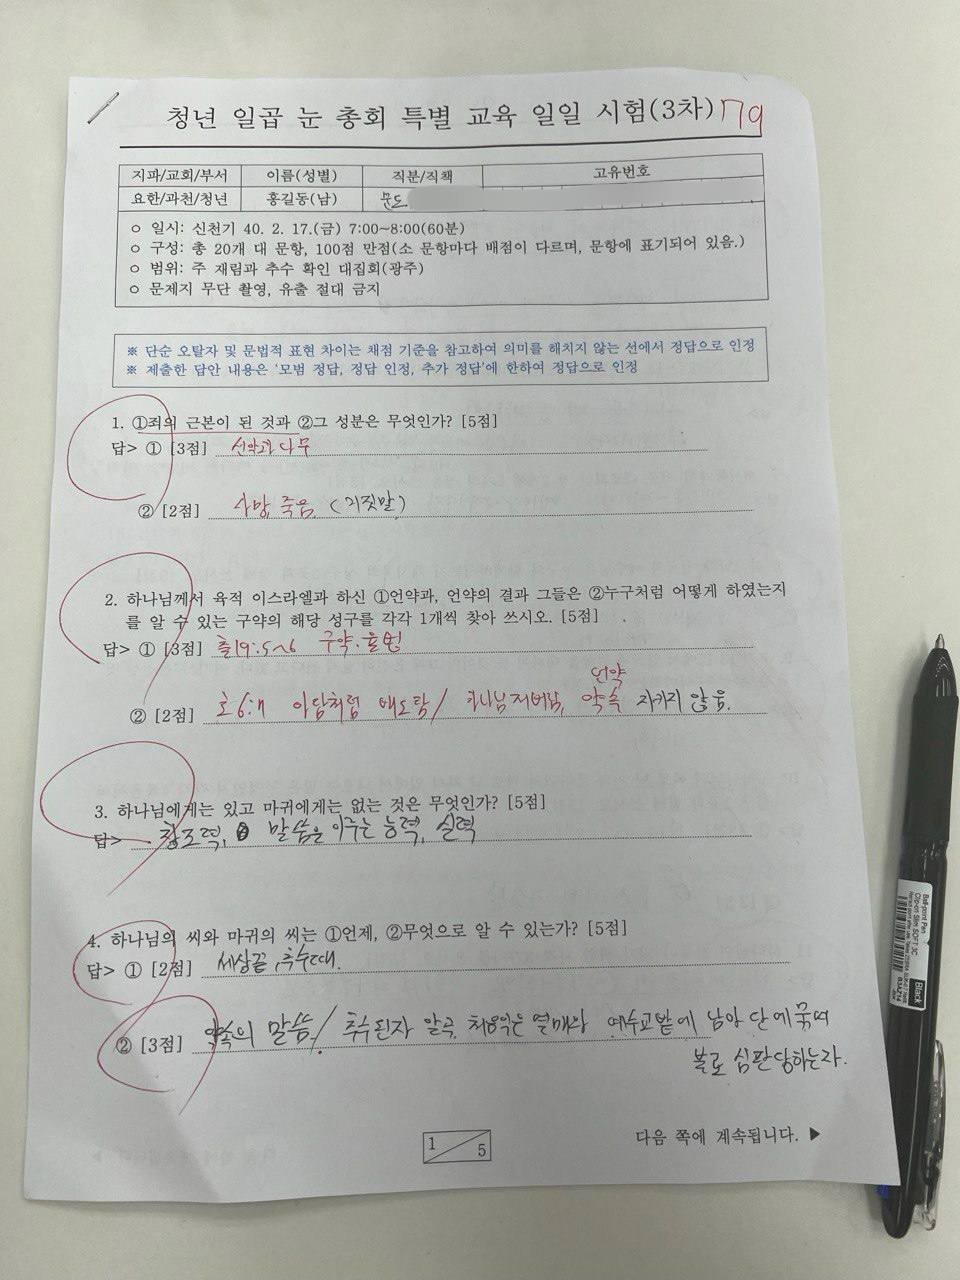 청년 일곱 눈 총회 특별 교육 일일 시험(3차) 79
지파/교회/부서 이름(성별) 직분/직책 고유번호
요한/과천/청년 홍길동(남) 문도
○ 일시: 신천기 40. 2. 17.(금) 7:00~8:00(60분)
○ 구성: 총 20개 대 문항, 100점 만점(소 문항마다 배점이 다르며, 문항에 표기되어 있음.)
○ 범위: 주 재림과 추수 확인 대집회(광주)
○ 문제지 무단 촬영, 유출 절대 금지
※ 단순 오탈자 및 문법적 표현 차이는 채점 기준을 참고하여 의미를 해치지 않는 선에서 정답으로 인정
※ 제출한 답안 내용은 '모범 정답, 정답 인정, 추가 정답'에 한하여 정답으로 인정
1. ①죄의 근본이 된 것과 ②그 성분은 무엇인가? [5점]
답> ① [3점] 선악과 나무
② [2점] 사망, 죽음. (거짓말)
2. 하나님께서 육적 이스라엘과 하신 ①언약과, 언약의 결과 그들은 ②누구처럼 어떻게 하였는지
를 알 수 있는 구약의 해당 성구를 각각 1개씩 찾아 쓰시오. [5점]
답> ① [3점] 출19:5~6 구약. 율법
언약
② [2점] 호6:7 아담처럼 배도함/ 하나님 저버림, 약속 지키지 않음.
3. 하나님에게는 있고 마귀에게는 없는 것은 무엇인가? [5점]
답> 창조력, 말씀을 이루는 능력, 실력
4. 하나님의 씨와 마귀의 씨는 ①언제, ②무엇으로 알 수 있는가? [5점]
답> ① [2점] 세상끝, 추수때.
② [3점] 약속의 말씀/ 추수된자 알곡, 열매와 예수교밭에 남아 단에 묶여
불로 심판당하는자.
1 5
다음 쪽에 계속됩니다. ▶
Ball-point Pen
Clip-on Slim SOFT 3C
Black